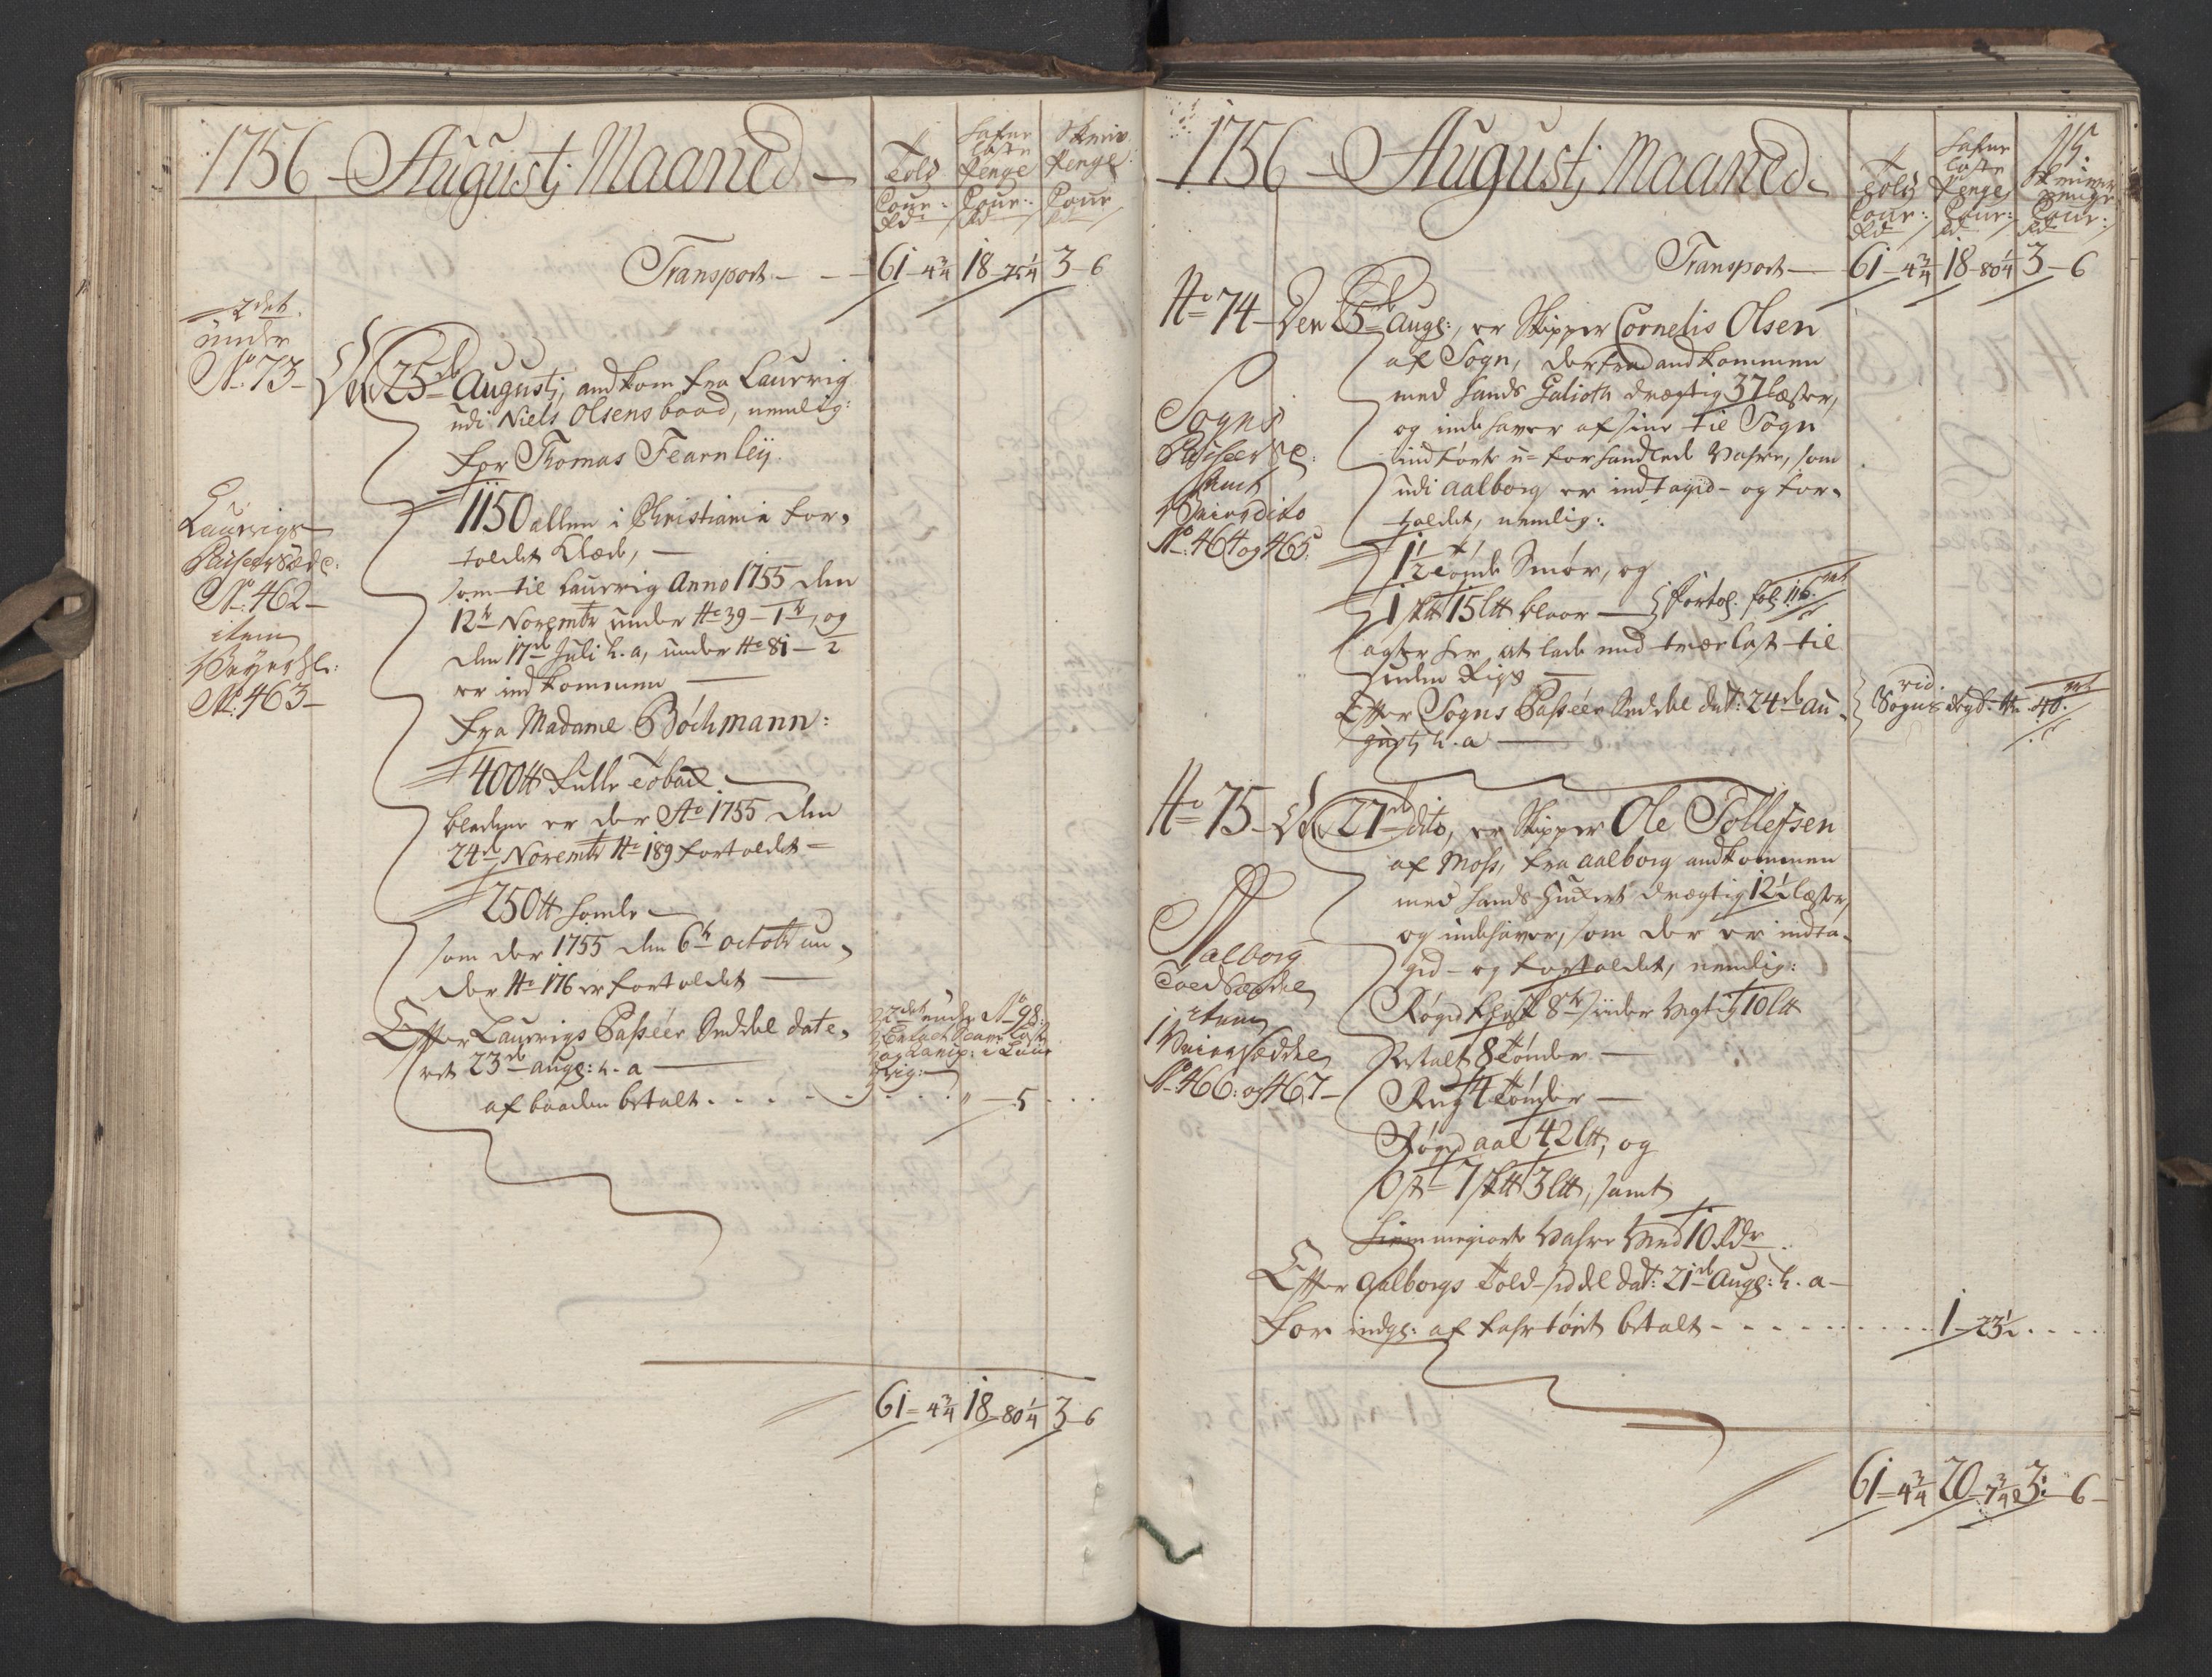 1756 - Augustj Maaned -
Told Cour: Rd
Hafne Laste Penge Cour: Rd
Skriv Penge Cour Rd
Transport - - 61 - 4 3/4 18 - 75 1/4 3 - 6
2det
under
No. 73 -
Den 25de Augustj, andkom fra Laurvig
udi Niels Olsens baad, nemlig:
for Thomas Fearnleÿ.
Laurvigs
Passeer Sedl:
No. 462 -
item
No. 463 -
1150 allen i Christiania for-
toldet Klæde, -
som til Laurvig Anno 1755 den
12te Novembr under No 39 - 1te, og
den 17de Juli h. a, under No 81 - 2
er indkommen -
fra Madame Böchmann:
400 tt Rulle Toback -
bladene er der Ao 1755 den
24de Novembr No 189 fortoldet -
250 tt homle -
som der 1755 den 6te octobr un-
der No 176 er fortoldet -
Efter Laurvigs Passéer Seddel date-
ret 23de augs: h. a -
2det under No 98:
af baaden betalt . . . . " - 5 . . .
61 - 4 3/4 18 - 80 1/4 3 - 6
115
1756 - Augustj Maaned -
Told Cour: Rd
Hafne Laste Penge Cour: Rd
Skriver Penge Cour: Rd
Transport - 61 - 4 3/4 18 - 80 1/4 3 - 6
No 74 - Den 25de Augs:, er Skipper Cornelis Olsen
af Sogn, derfra andkommen
med hands Galioth drægtig 37 læster,
og indehaver af sine til Sogn
indførte u-forhandlede Vahre, som
udi aalborg er indtagid - og for-
toldet, nemlig:
Sogns
Passeer Se:
samt
No. 464 og 465:
1 1/2 tønde Smör, og
1 sktt 15 ltt blaar - fortol. fol: 116.
agter her at lade med træelast til
uden Rigs -
Efter Sogns Passéer Seddel dat: 24de Au-
gustj h. a -
vid.
Sogns udgd. No 40.
No 75 - Den 27de dito, er Skipper Ole Tollefsen
af Moss, fra aalborg andkommen
med hands Huckert drægtig 12 1/2 læster,
og indehaver, som der er indta-
gid - og fortoldet, nemlig:
Aalborg
Toldseddel
item
Veierseddel
No. 466: og 467 -
Røged flesk 8te sider Vegtig 10 ltt
8 tønder -
Rug 4 Tønder -
Røged aal 42 ltt, og
Ost 7 sktt 3 ltt, samt
hiemmegiorte Vahre Værd 10 Rdr.
Efter Aalborgs Told-seddel dat: 21de Augs: h. a -
for indgs: af fahrtöiet betalt - - - . . . 1 - 23 1/2 . . . .
61 - 4 3/4 20 - 7 3/4 3: - 6 -